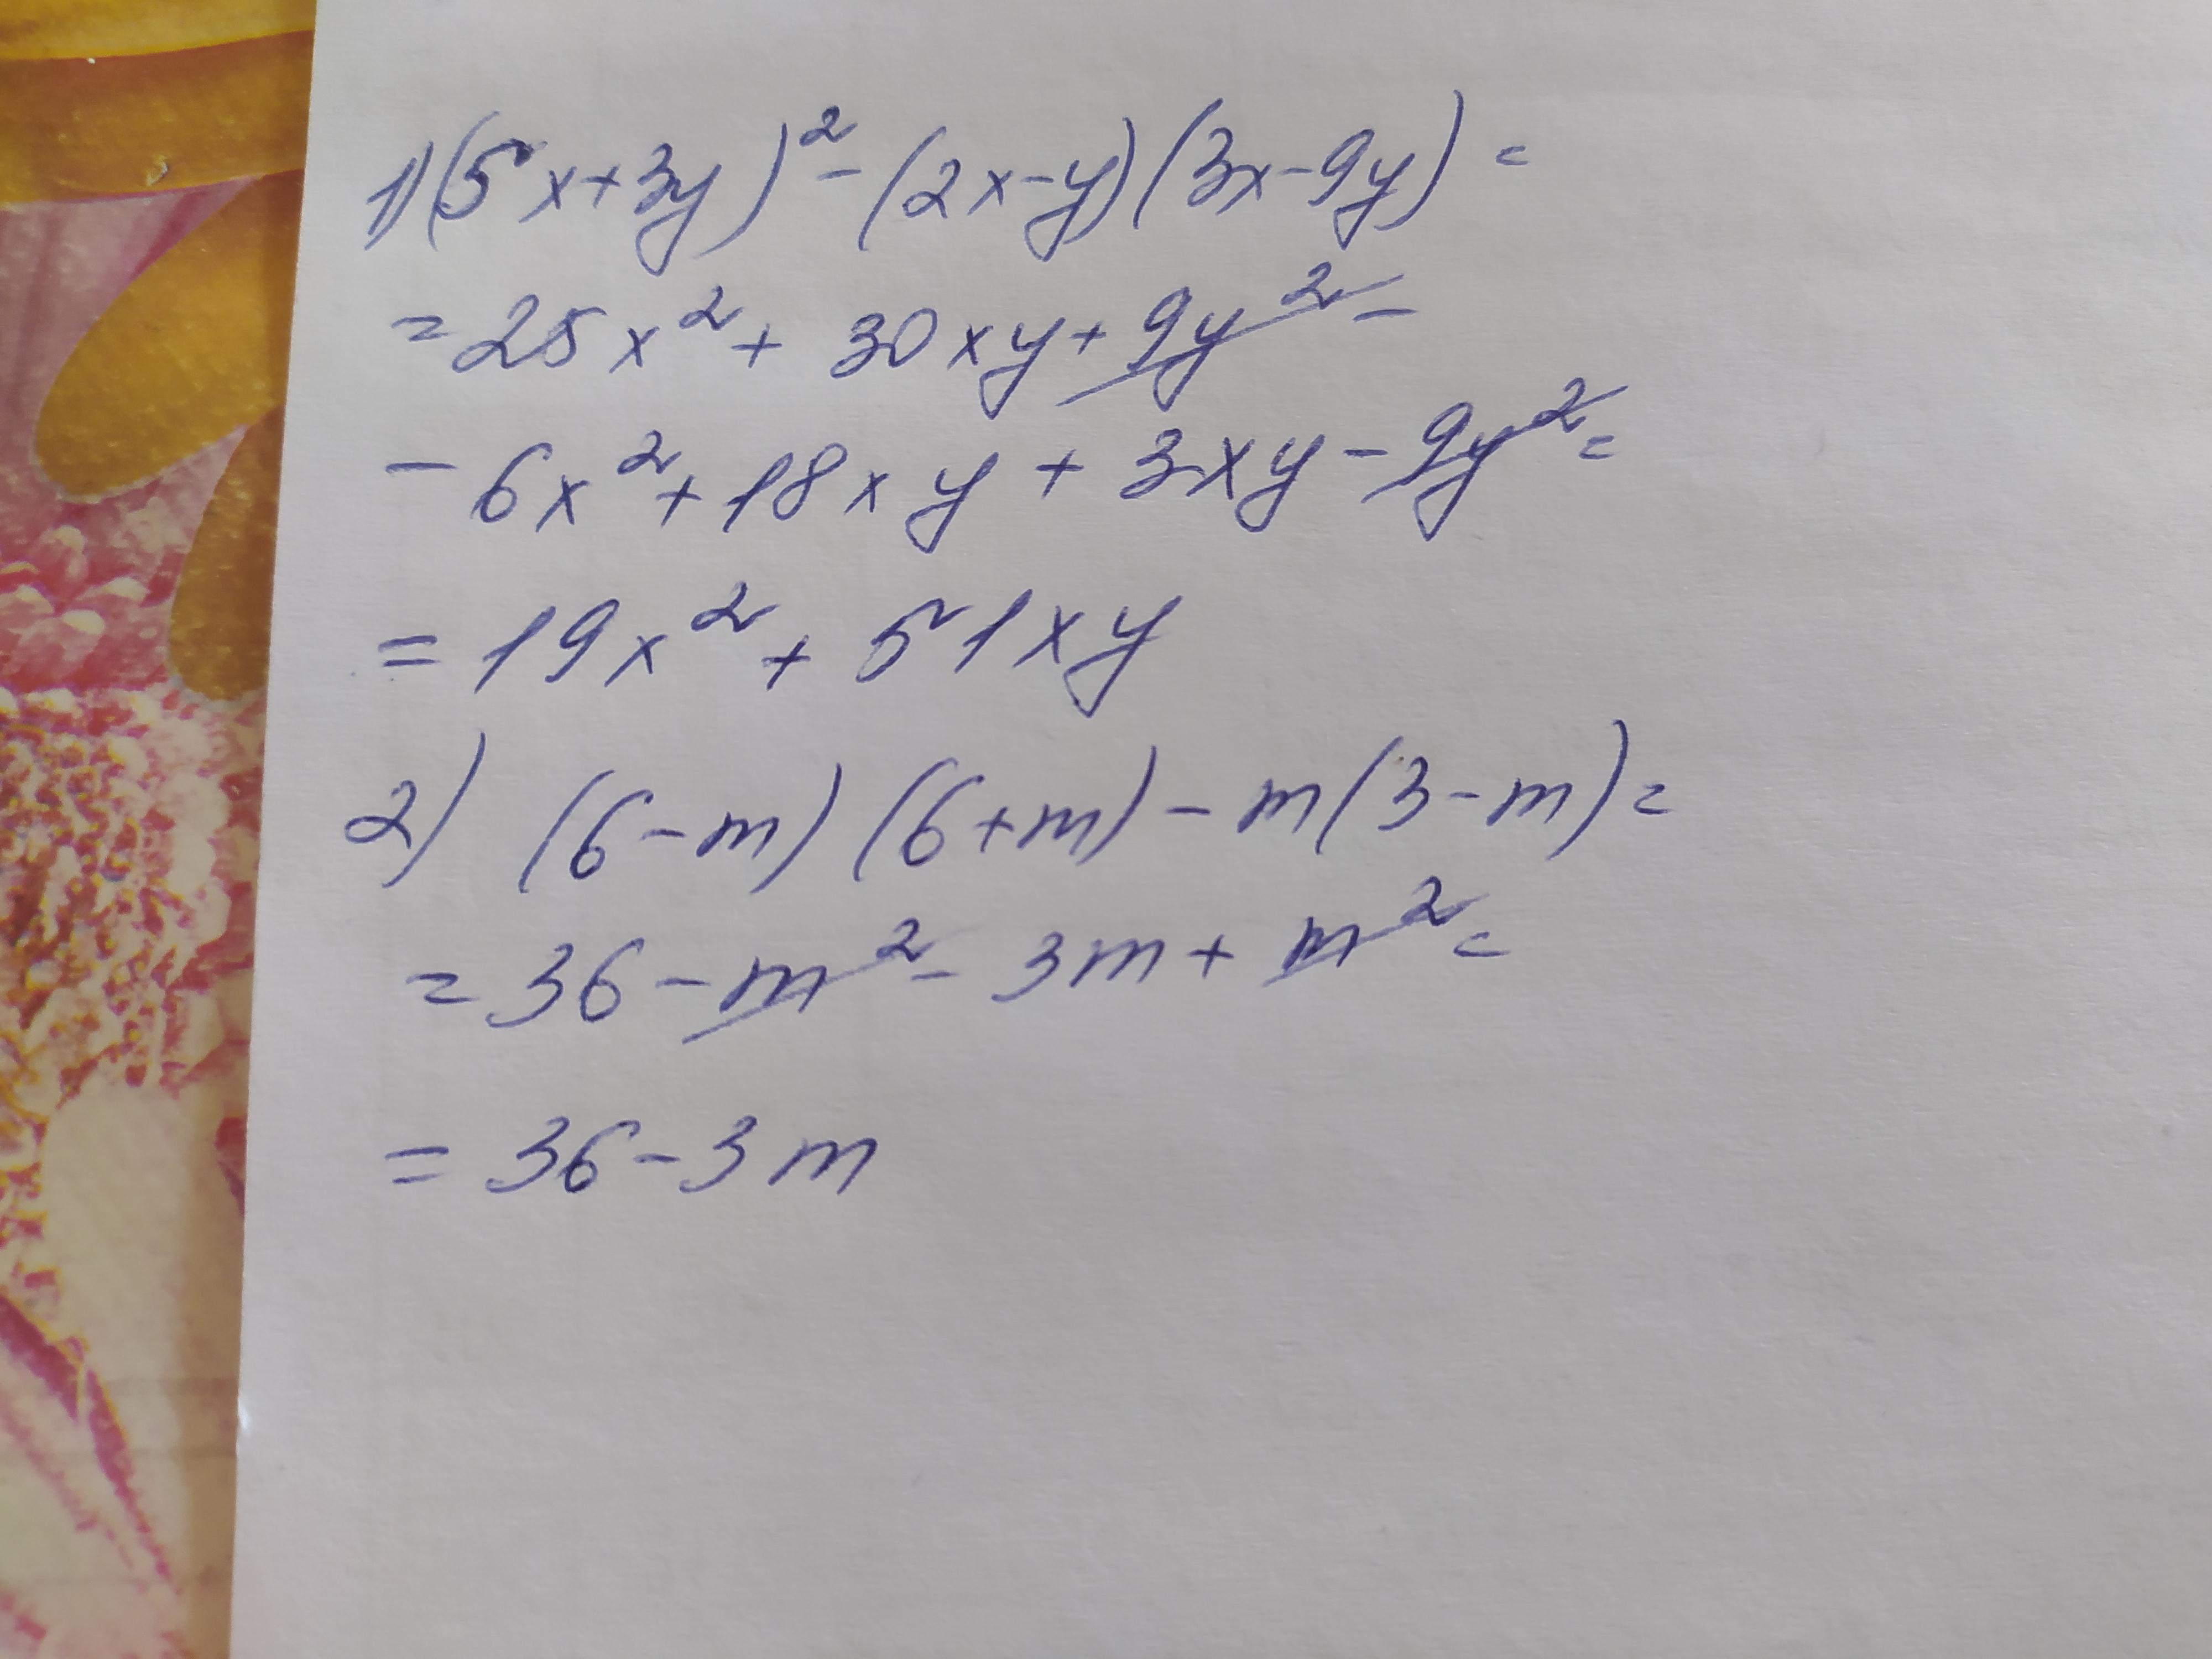 1) (5x+3y)² - (2x-y)(3x-9y) =
= 25x² + 30xy + 9y² -
- 6x² + 18xy + 3xy - 9y² =
= 19x² + 51xy
2) (6-m)(6+m) - m(3-m) =
= 36 - m² - 3m + m² =
= 36 - 3m